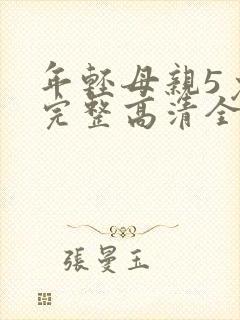 年輕母親5
完整高清全
張曼玉